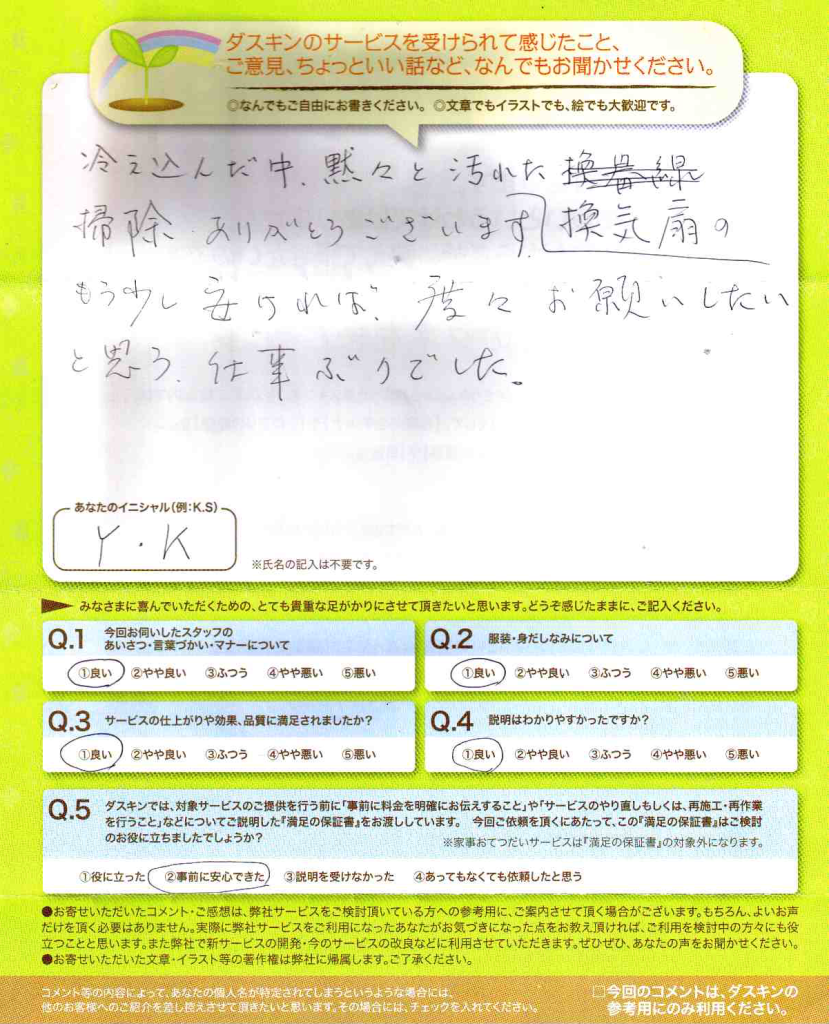 ダスキンのサービスを受けられて感じたこと、
ご意見、ちょっといい話など、なんでもお聞かせください。
◎なんでもご自由にお書きください。 ◎文章でもイラストでも、絵でも大歓迎です。
冷え込んだ中、黙々と汚れた
掃除 ありがとうございます。換気扇の
もう少し安ければ、度々お願いしたい
と思う、仕事ぶりでした。
あなたのイニシャル(例:K.S)
Y・K
※氏名の記入は不要です。
みなさまに喜んでいただくための、とても貴重な足がかりにさせて頂きたいと思います。どうぞ感じたままに、ご記入ください。
Q.1 今回お伺いしたスタッフの
あいさつ・言葉づかい・マナーについて
①良い ②やや良い ③ふつう ④やや悪い ⑤悪い
Q.2 服装・身だしなみについて
①良い ②やや良い ③ふつう ④やや悪い ⑤悪い
Q.3 サービスの仕上がりや効果、品質に満足されましたか?
①良い ②やや良い ③ふつう ④やや悪い ⑤悪い
Q.4 説明はわかりやすかったですか?
①良い ②やや良い ③ふつう ④やや悪い ⑤悪い
Q.5 ダスキンでは、対象サービスのご提供を行う前に「事前に料金を明確にお伝えすること」や「サービスのやり直しもしくは、再施工・再作業
を行うこと」などについてご説明した『満足の保証書』をお渡ししています。 今回ご依頼を頂くにあたって、この『満足の保証書』はご検討
のお役に立ちましたでしょうか?
※家事おてつだいサービスは『満足の保証書』の対象外になります。
①役に立った ②事前に安心できた ③説明を受けなかった ④あってもなくても依頼したと思う
●お寄せいただいたコメント・ご感想は、弊社サービスをご検討頂いている方への参考用に、ご案内させて頂く場合がございます。もちろん、よいお声
だけを頂く必要はありません。実際に弊社サービスをご利用になったあなたがお気づきになった点をお教え頂ければ、ご利用を検討中の方々にも役
立つことと思います。また弊社で新サービスの開発・今のサービスの改良などに利用させていただきます。ぜひぜひ、あなたの声をお聞かせください。
●お寄せいただいた文章・イラスト等の著作権は弊社に帰属します。ご了承ください。
コメント等の内容によって、あなたの個人名が特定されてしまうというような場合には、
他のお客様へのご紹介を差し控えさせて頂きたいと思います。その場合には、チェックを入れてください。
□今回のコメントは、ダスキンの
参考用にのみ利用ください。